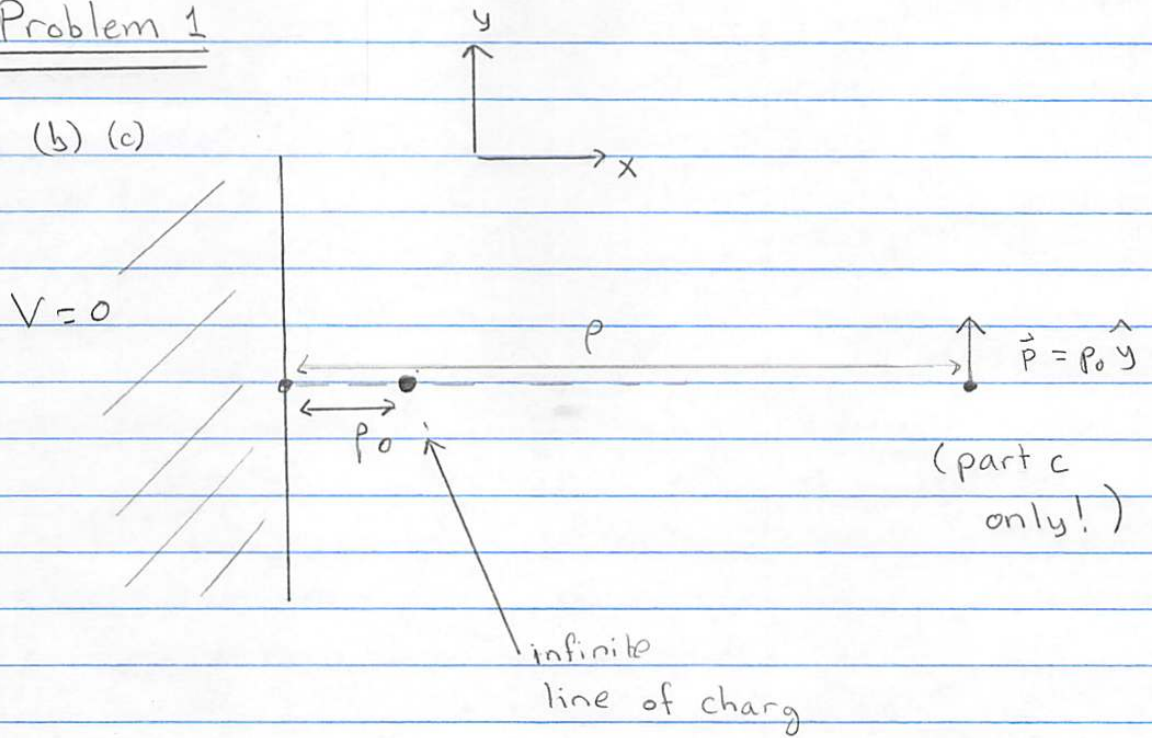 Problem 1
y
(b) (c)
x
V = 0
ρ
p⃗ = p₀ ŷ
ρ₀
(part c
only!)
infinite
line of charg